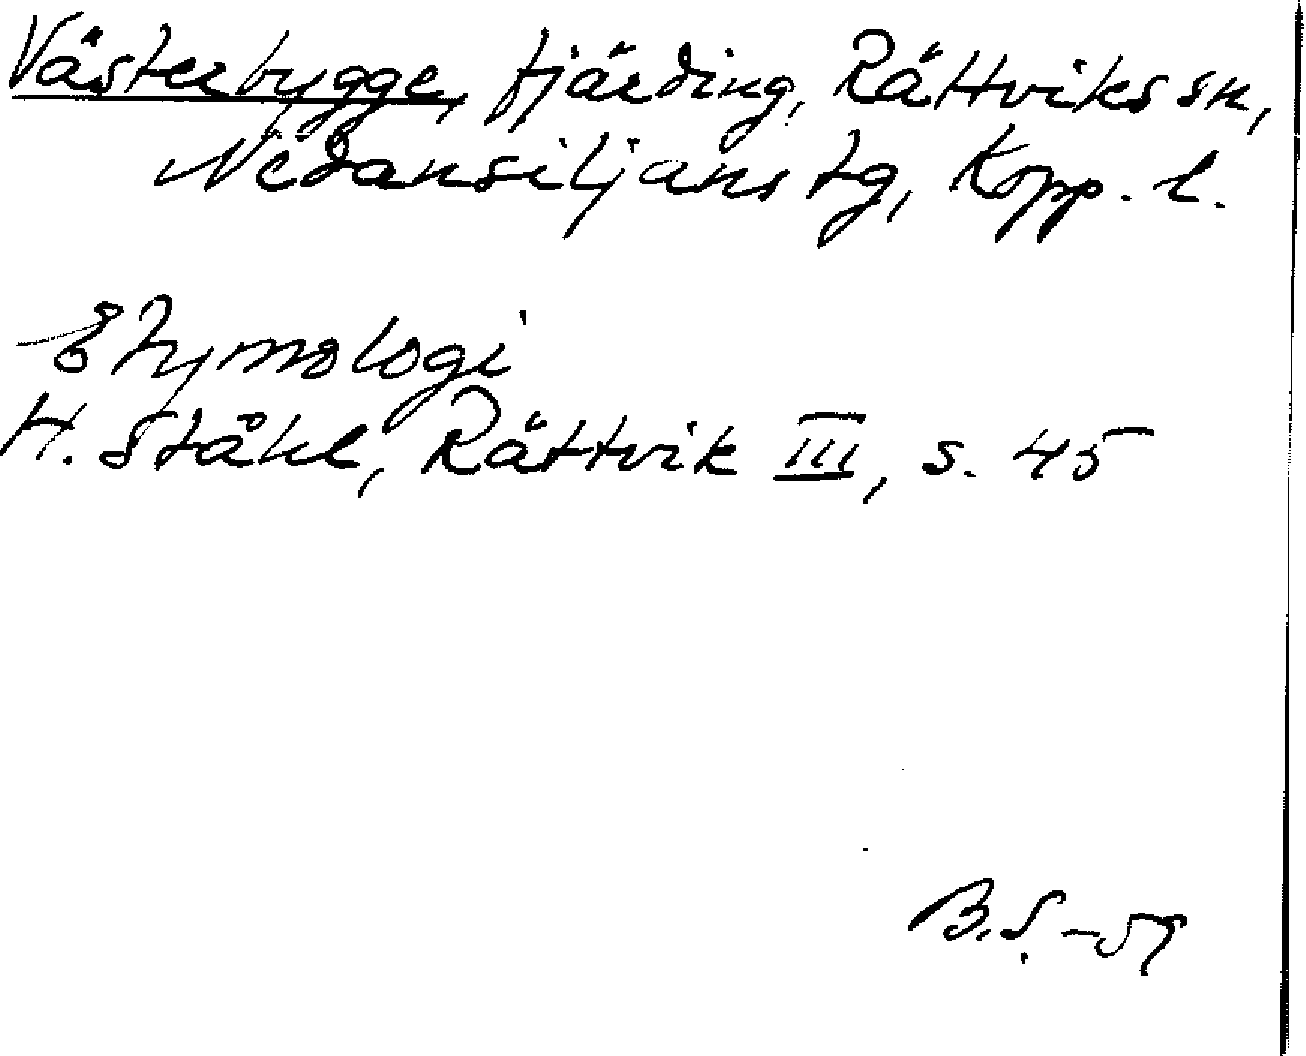 Västerbygge, fjärding, Rättviks sn,
Nedansiljans tg, Kopp. l.
Etymologi
H. Ståhl, Rättvik III, s. 45
B.S. -59